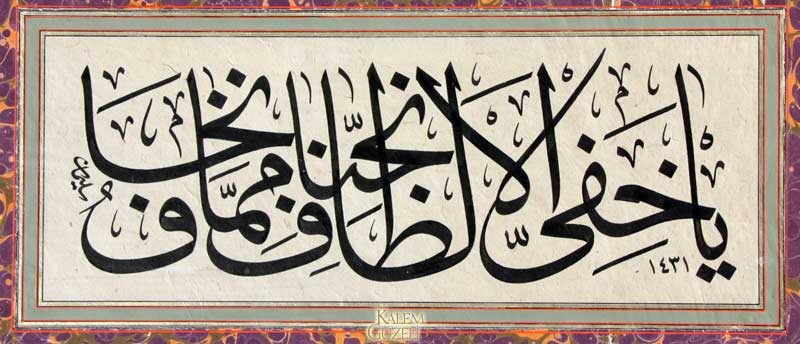 يا خفيّ الالطاف نجّنا ممّا نخاف
١٤٣١
KALEM
GÜZELİ